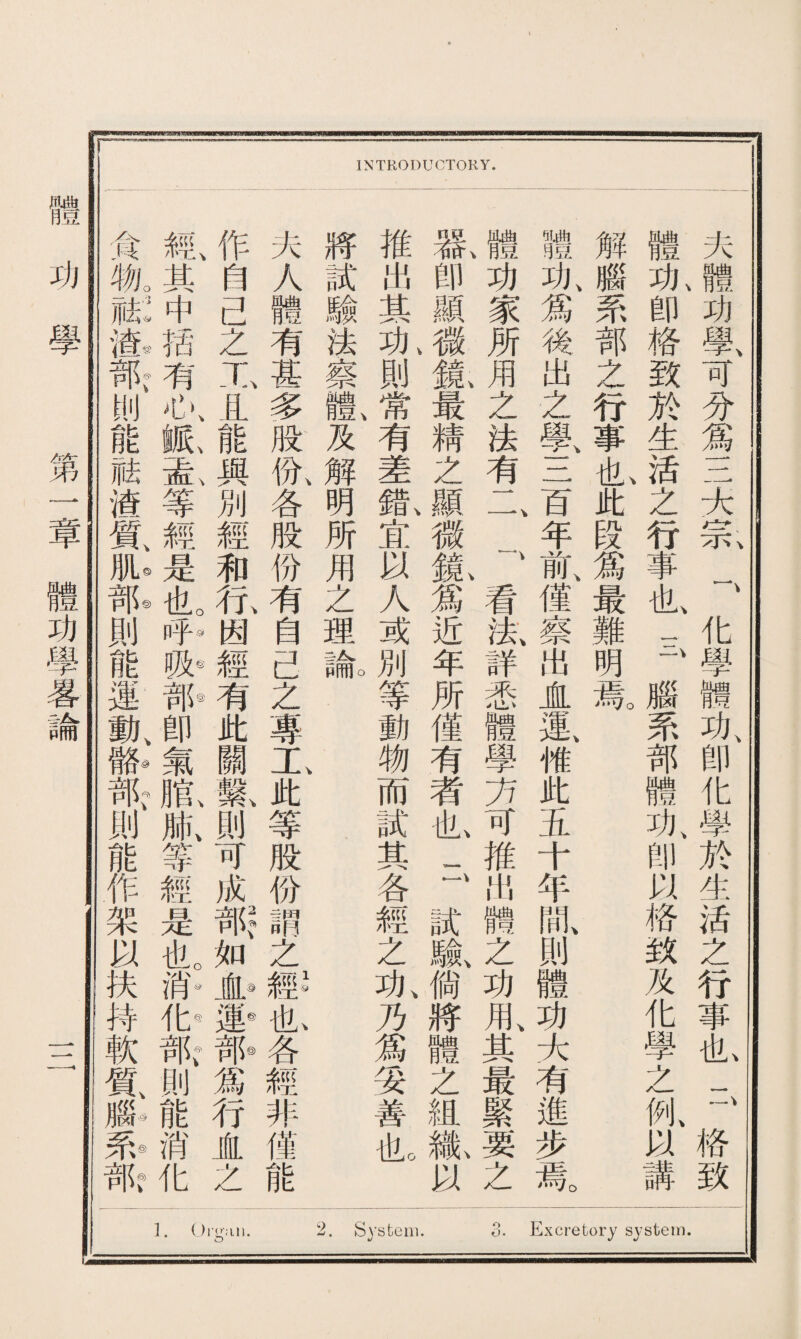 INTRODUCTORY.
夫體功學、可分爲三大宗、一、化學體功、卽化學於生活之行事也、二、格致
體功、卽格致於生活之行事也、三、腦系部體功、卽以格致及化學之例、以講
解腦系部之行事也、此段爲最難明焉。
體功、爲後出之學、三百年前、僅察出血運、惟此五十年間、則體功大有進步焉。
體功家所用之法有二、一、看法、詳悉體學方可推出體之功用、其最緊要之
器、卽顯微鏡、最精之顯微鏡、爲近年所僅有者也、二、試驗、倘將體之組織、以
推出其功、則常有差錯、宜以人或別等動物而試其各經之功、乃爲妥善也。
將試驗法察體、及解明所用之理論。
夫人體有甚多股份、各股份有自己之專工、此等股份謂之經1也、各經非僅能
作自己之工、且能與別經和行、因經有此關繫、則可成部2、如血運部爲行血之
經、其中括有心、䘑、衁、等經是也。呼吸部卽氣䐊、肺、等經是也。消化部、則能消化
食物。祛3渣部、則能祛渣質、肌部則能運動、骼部、則能作架以扶持軟質、腦系部、
體功學 第一章 體功學畧論 三
1. Organ. 2. System. 3. Excretory system.